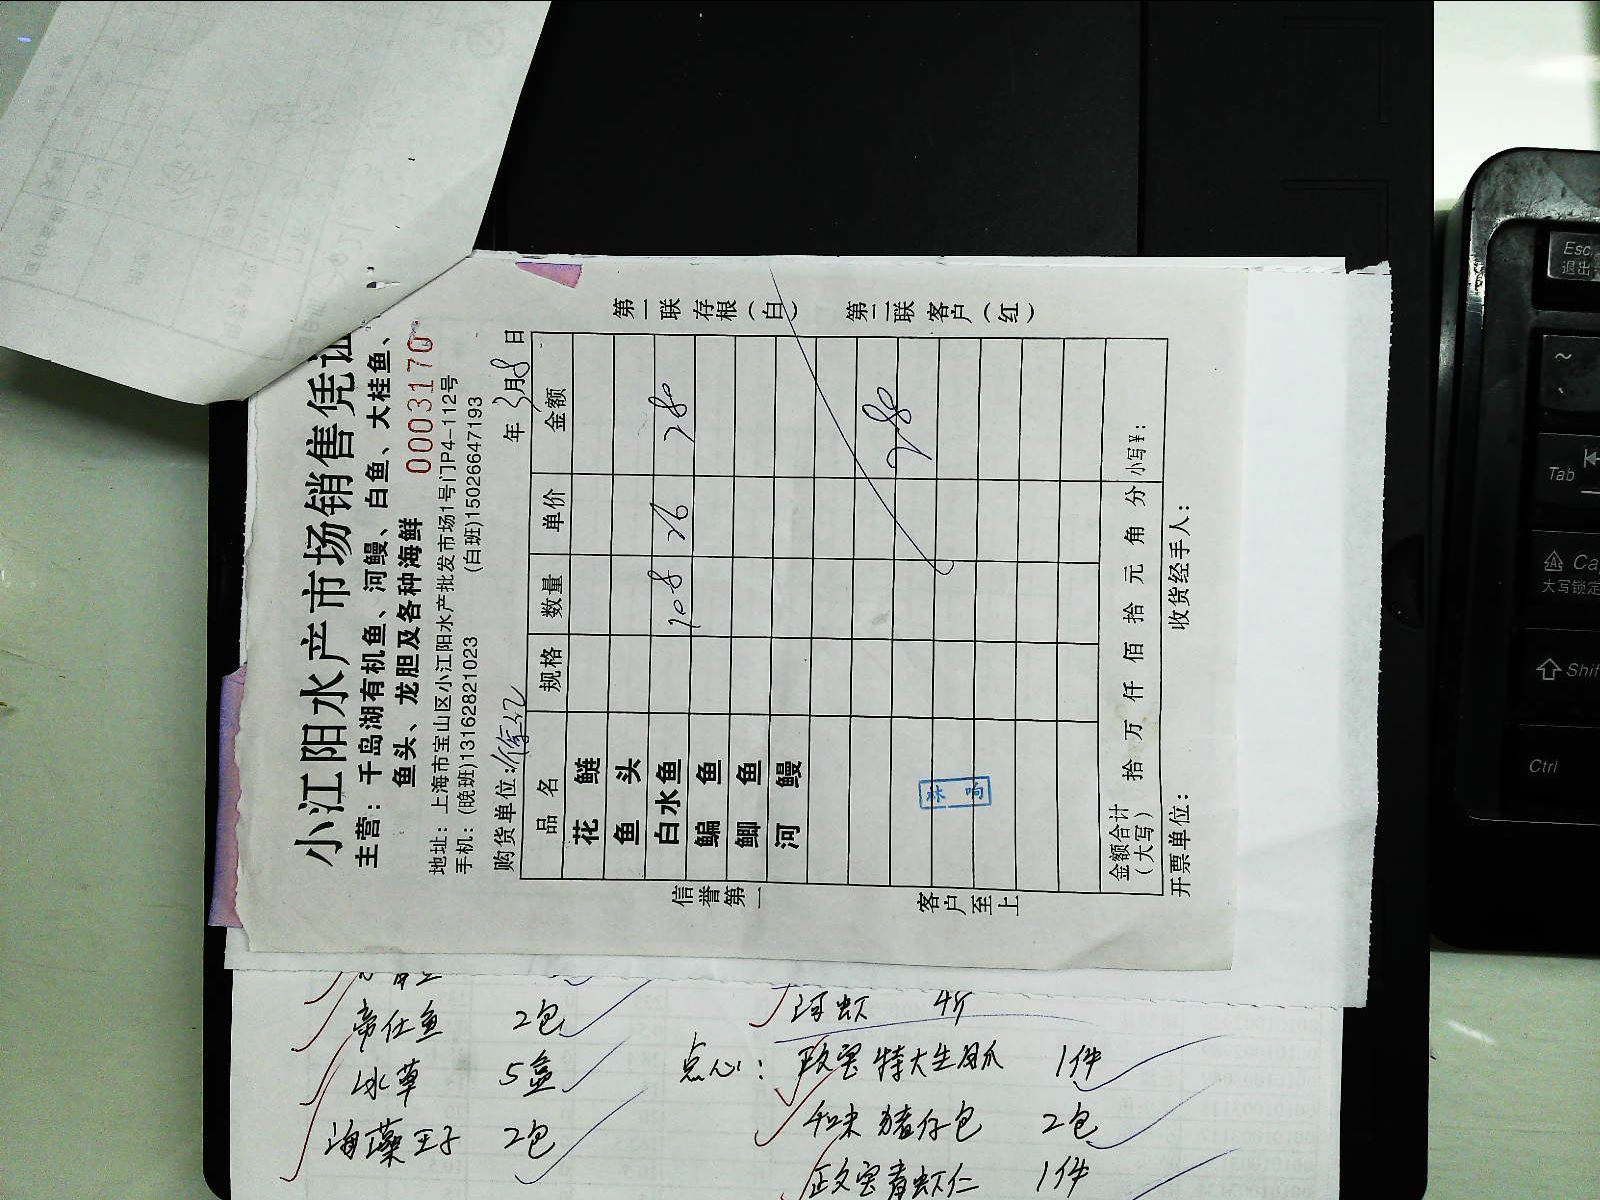 小江阳水产市场销售凭证
主营：千岛湖有机鱼、河鳗、白鱼、大桂鱼、
鱼头、龙胆及各种海鲜
0003170
地址：上海市宝山区小江阳水产批发市场1号门P4-112号
手机：(晚班)13162821023 (白班)15026647193
购货单位： 年 3月8日
品名 规格 数量 单价 金额
花鲢
鱼头
白水鱼 108 26 280
鳊鱼
鲫鱼
河鳗
280
金额合计（大写） 拾 万 仟 佰 拾 元 角 分 小写¥：
开票单位： 收货经手人：
信誉第一 客户至上
第一联 存根（白） 第二联 客户（红）
帝仕鱼 2包
冰草 5盒
海藻王子 2包
河虾 4斤
点心： 政宽特大生凤爪 1件
和味猪仔包 2包
政宽青虾仁 1件
Esc
退出
~
Tab
Ca
大写锁定
Shif
Ctrl